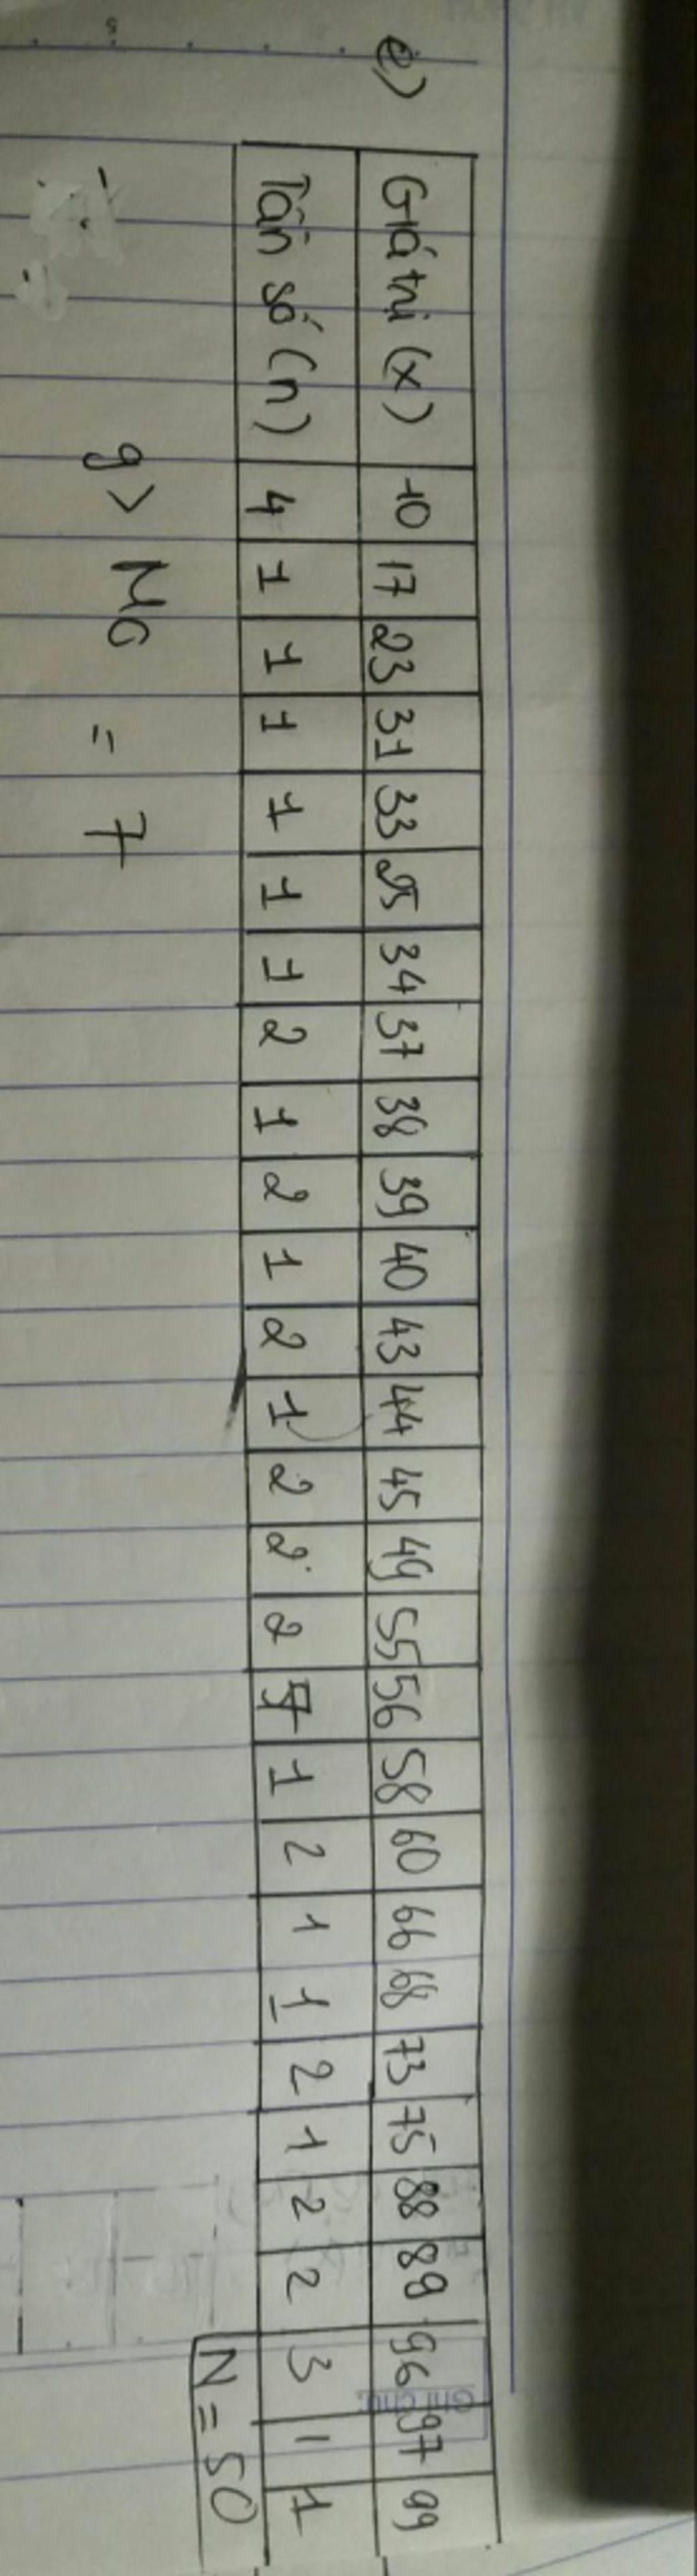 e)
Giá trị (x) 10 17 23 31 33 25 34 37 38 39 40 43 44 45 49 55 56 58 60 66 68 73 75 88 89 96 97 99
Tần số (n) 4 1 1 1 1 1 1 2 1 2 1 2 1 2 2 2 7 1 2 1 1 2 1 2 2 3 1 1
N = 50
g> M0 = 7